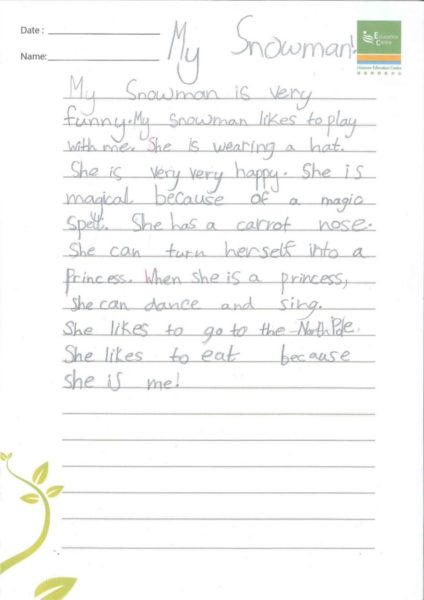 Date :
My Snowman!
Education
Centre
Name:
My Snowman is very
funny. My snowman likes to play
with me. She is wearing a hat.
She is very very happy. She is
magical because of a magic
spell. She has a carrot nose.
She can turn herself into a
Princess. When she is a princess,
she can dance and sing.
She likes to go to the North Pole.
She likes to eat because
she is me!